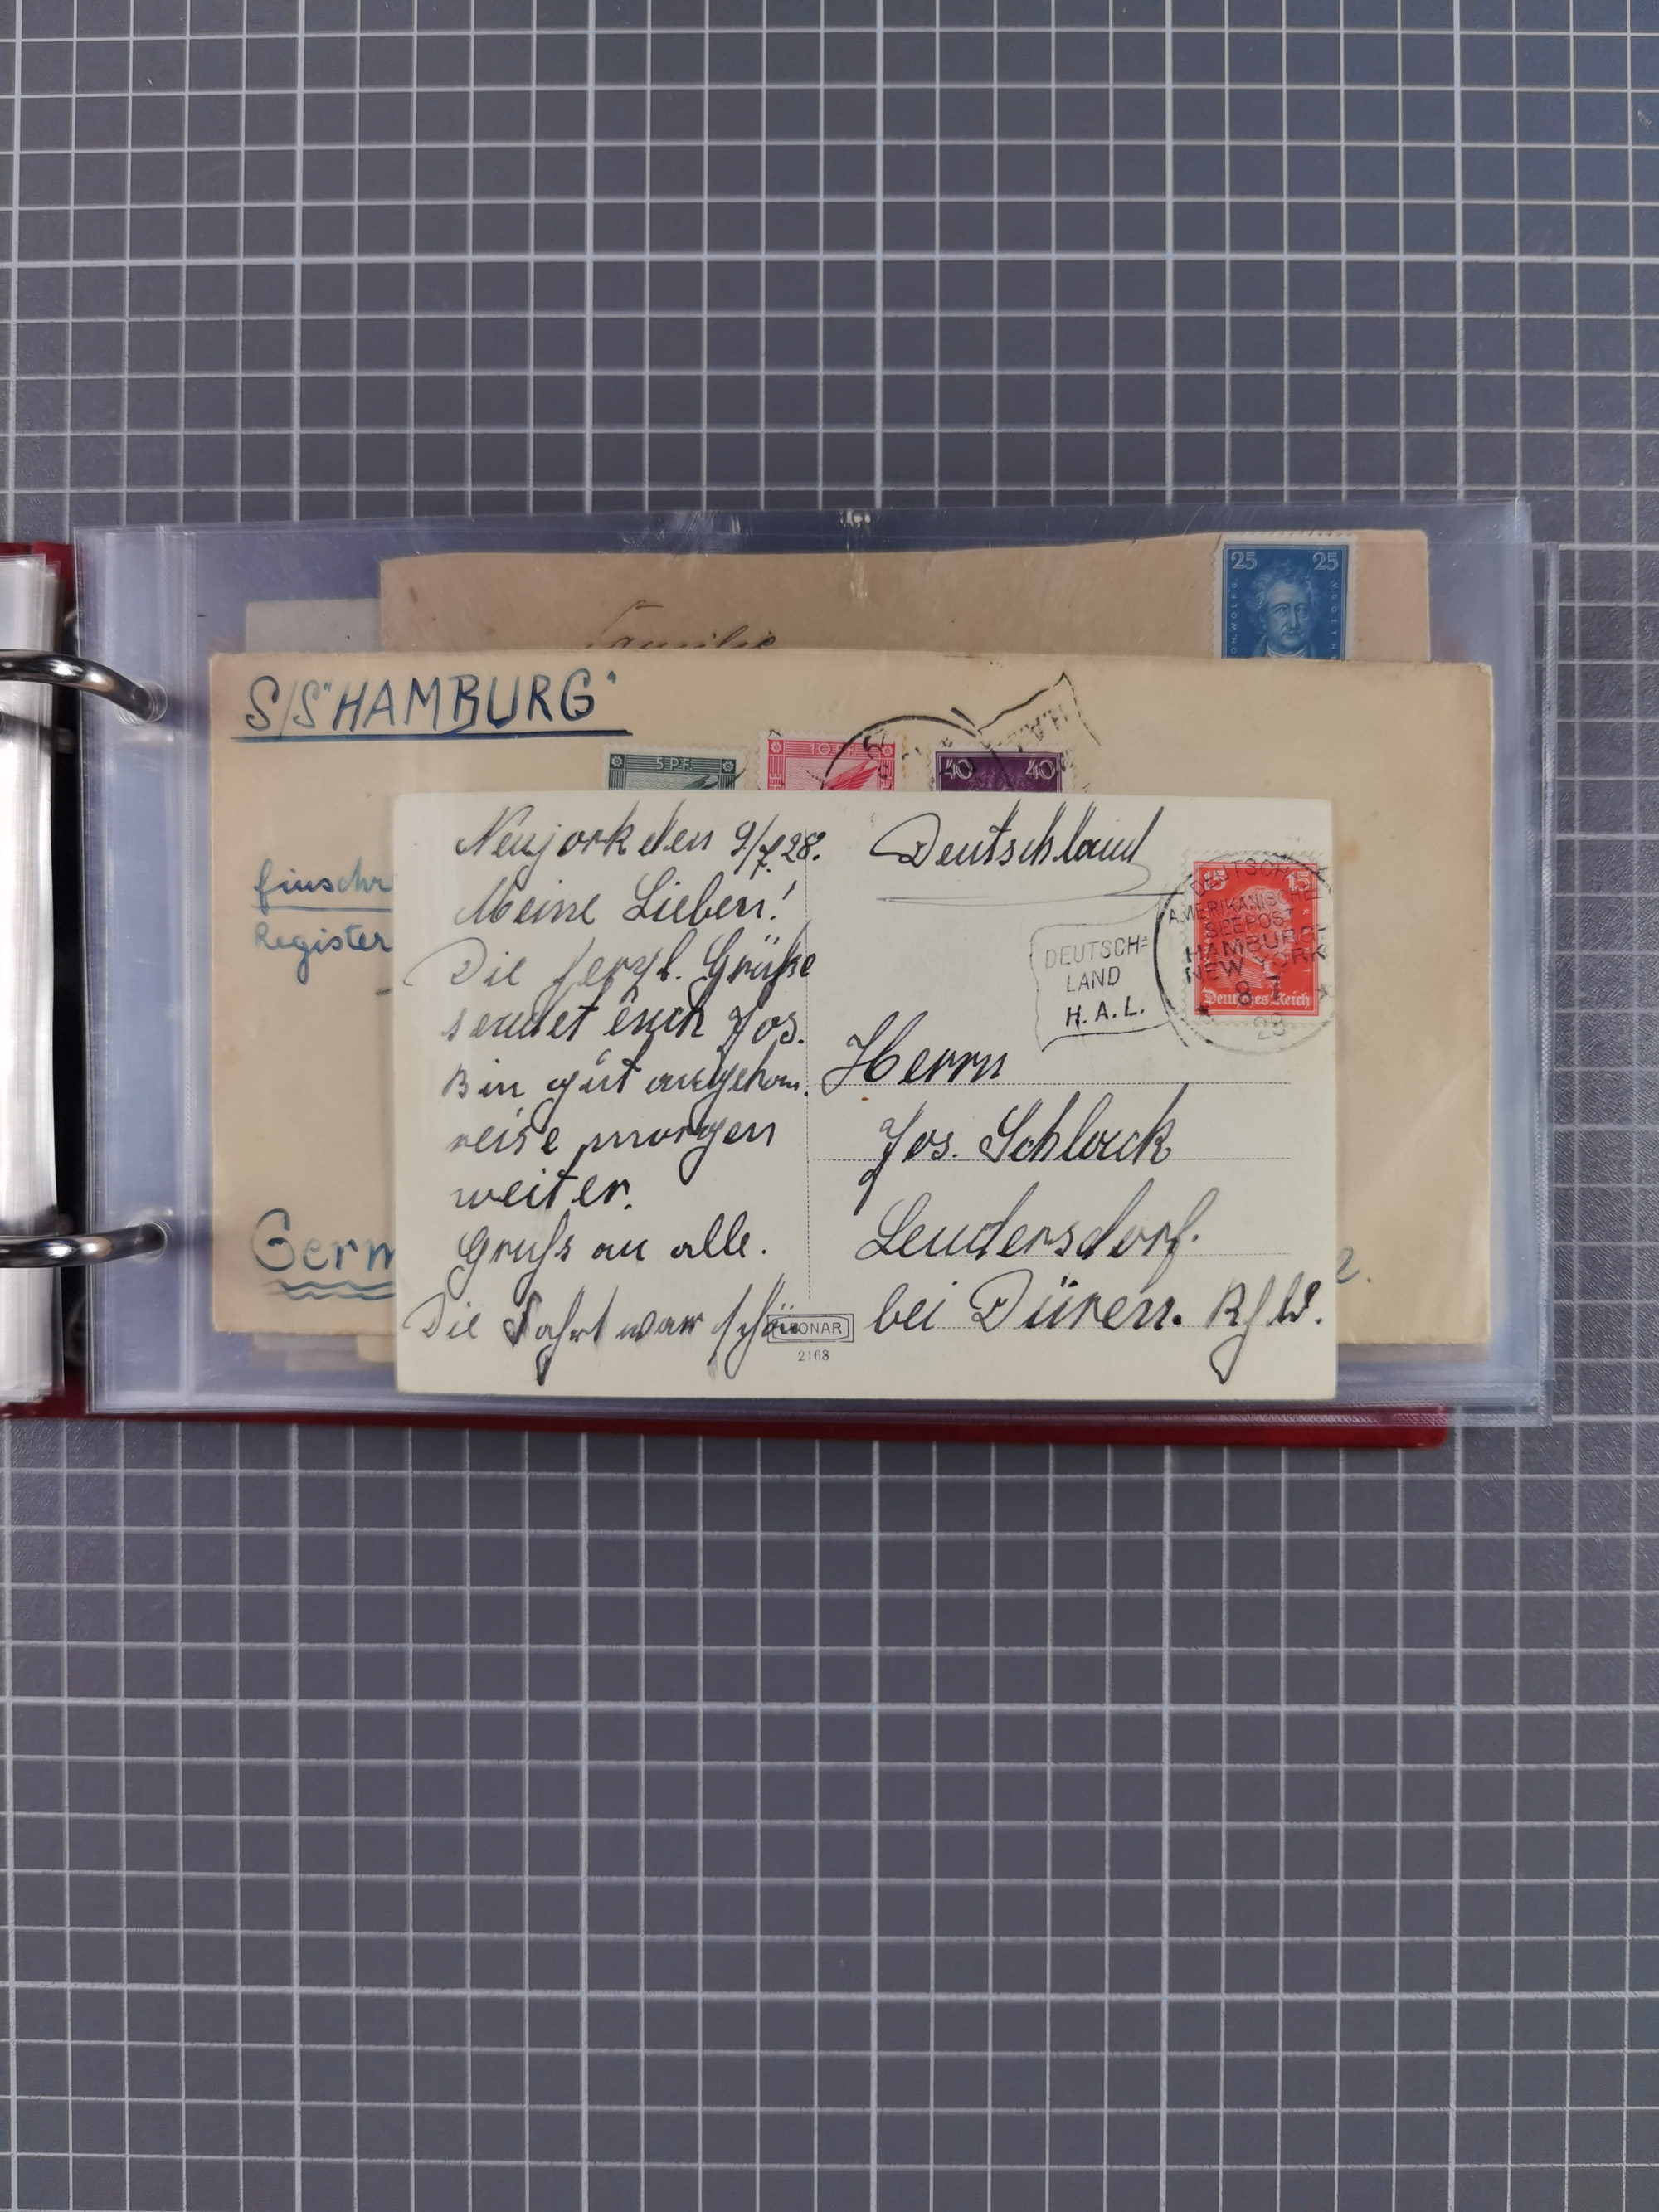 25 25
Familie
S/S "HAMBURG"
5 PF.
10 PF.
40 40
Einschr
Register
Germ
2.
Neujork den 9/7. 28.
Meine Lieben!
Die herzl. Grüße
sendet euch Jos.
Bin gut angekom.
reise morgen
weiter.
Gruß an alle.
Die Fahrt war schön
LEONAR
2168
Deutschland
15 15
Deutsches Reich
DEUTSCH-
AMERIKANISCHE
SEEPOST
HAMBURG-
NEW YORK
8 7
28
DEUTSCH=
LAND
H.A.L.
Herrn
Jos. Schlack
Leudersdorf.
bei Düren. Rhld.